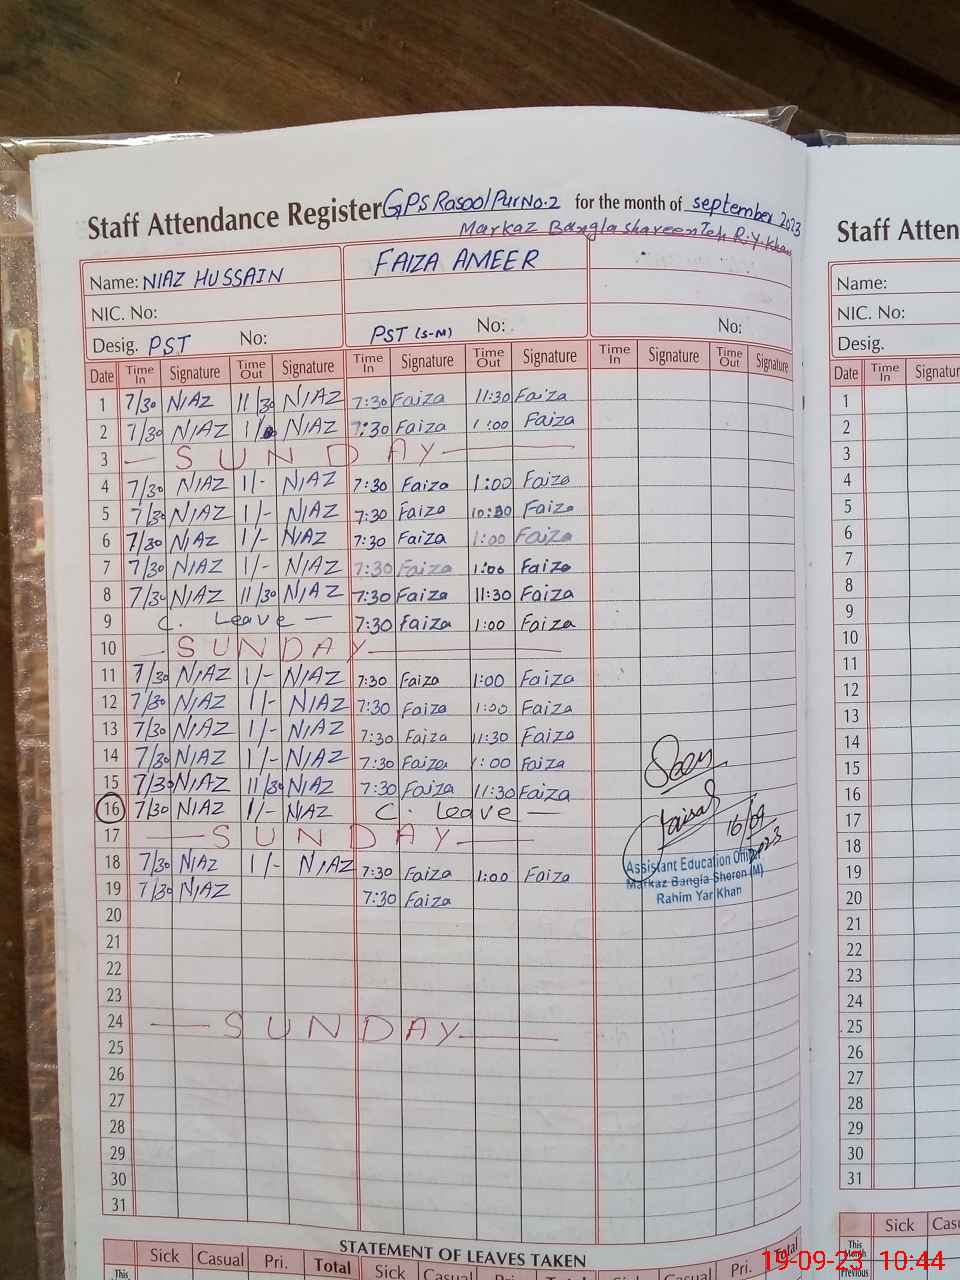 Staff Attendance Register GPS Rasool Pur No.2 for the month of september 2023
Markaz Bangla Shareen Teh R.Y.Khan
Name: NIAZ HUSSAIN FAIZA AMEER
NIC. No:
Desig. PST No: PST (S-M) No: No:
Date Time In Signature Time Out Signature Time In Signature Time Out Signature Time In Signature Time Out Signature
1 7/30 NIAZ 11/30 NIAZ 7:30 Faiza 11:30 Faiza
2 7/30 NIAZ 1/ NIAZ 7:30 Faiza 1:00 Faiza
3 — SUNDAY —
4 7/30 NIAZ 1/- NIAZ 7:30 Faiza 1:00 Faiza
5 7/30 NIAZ 1/- NIAZ 7:30 Faiza Faiza
6 7/30 NIAZ 1/- NIAZ 7:30 Faiza 1:00 Faiza
7 7/30 NIAZ 1/- NIAZ 7:30 Faiza 1:00 Faiza
8 7/30 NIAZ 11/30 NIAZ 7:30 Faiza 11:30 Faiza
9 C. Leave — 7:30 Faiza 1:00 Faiza
10 — SUNDAY —
11 7/30 NIAZ 1/- NIAZ 7:30 Faiza 1:00 Faiza
12 7/30 NIAZ 1/- NIAZ 7:30 Faiza 1:00 Faiza
13 7/30 NIAZ 1/- NIAZ 7:30 Faiza 11:30 Faiza
14 7/30 NIAZ 1/- NIAZ 7:30 Faiza 1:00 Faiza
15 7/30 NIAZ 11/30 NIAZ 7:30 Faiza 11:30 Faiza
16 7/30 NIAZ 1/- NIAZ C. Leave —
17 — SUNDAY —
18 7/30 NIAZ 1/- NIAZ 7:30 Faiza 1:00 Faiza
19 7/30 NIAZ 7:30 Faiza
20
21
22
23
24 — SUNDAY —
25
26
27
28
29
30
31
Seen
Faisal 16/09
2023
Assistant Education Officer
Markaz Bangla Sheren (M)
Rahim Yar Khan
STATEMENT OF LEAVES TAKEN
Sick Casual Pri. Total Sick Casual Pri. Total
This
Staff Atten
Name:
NIC. No:
Desig.
Date Time In Signatur
1
2
3
4
5
6
7
8
9
10
11
12
13
14
15
16
17
18
19
20
21
22
23
24
25
26
27
28
29
30
31
Sick Cas
This Month
Previous
19-09-23 10:44